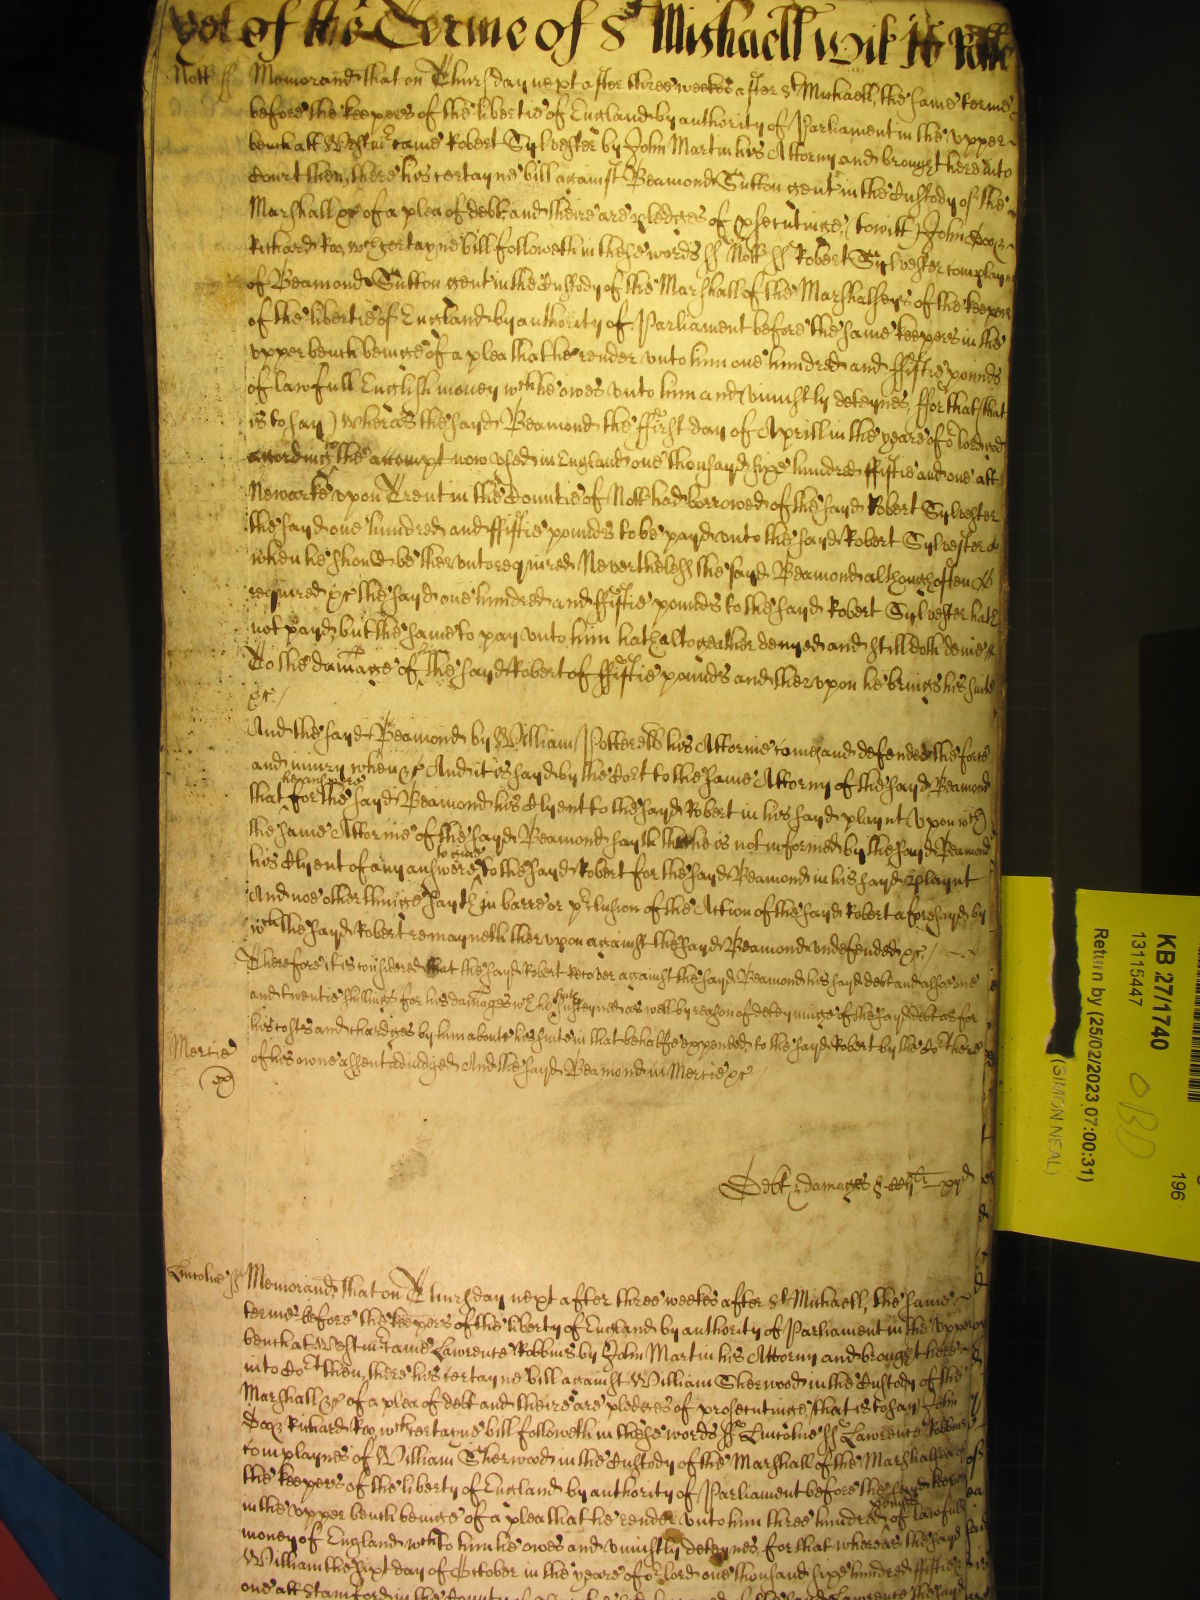 yet of the Terme of St Michaell Wit
Nott ss Memorand that on Thursday next after three weekes after St Michaell, the same terme
before the keepers of the libertie of England by authority of Parliament in the upper
bench att Westmr came Robert Sylvester by John Martin his Attorny and brought here into
Court then there his certayne bill against Beamond Sutton gent in the Custody of the
Marshall &c of a plea of debt and theire are pledges of prosecutinge, (to witt) John Doo &
Richard Roo, wch certayne bill followeth in these words ss Nott ss Robert Sylvester complayns
of Beamond Sutton gent in the Custody of the Marshall of the Marshalseys of the keepers
of the libertie of England by authority of Parliament before the same keepers in the
upper bench beinge of a plea that he render unto him one hundred and ffiftie pounds
of lawfull English money wch he owes unto him and uniustly deteynes, ffor that (that
is to say) whereas the sayd Beamond the ffirst day of Aprill in the yeare of or lord god
according to the accompt now used in England one thousand sixe hundred ffiftie and one att
Newarke upon Trent in the Countie of Nott had borrowed of the sayd Robert Sylvester
the sayd one hundred and ffiftie pounds to be payd unto the sayd Robert Sylvester
when he should be therunto required Neverthelesse the sayd Beamond although often
required &c the sayd one hundred and ffiftie pounds to the sayd Robert Sylvester hath
not payd, but the same to pay unto him hath altogeather denyed and still doth denie
To the damage of the sayd Robert of ffiftie pounds and therupon he brings his suite
&c /
And the sayd Beamond by William Potterell his Attornie comes and defendes the force
and iniury when &c And it is sayd by the Cort to the same Attorny of the sayd Beamond
that he answere for the sayd Beamond his Clyent to the sayd Robert in his sayd playnt Upon wch
the same Attornie of the sayd Beamond sayth that he is not informed by the sayd Beamond
his Clyent of any answere to give to the sayd Robert for the sayd Beamond in his sayd playnt
And noe other thinge sayth in barre or preclusion of the Action of the sayd Robert aforesayd by
wch the sayd Robert remayneth therupon against the sayd Beamond undefended &c /
Therefore it is considered that the sayd Robert Recover against the sayd Beamond his sayd debt and alsoe one
and twentie shillings for his damages wch he hath susteyned as well by reason of deteyninge of the sayd debt as for
his costs and chardges by him aboute his suite in that behalfe expended to the sayd Robert by the Cort here
of his owne assent adiudged And the sayd Beamond in Mercie &c
Mercie
Debt & damages
Lincolne ss Memorand, that on Thursday next after three weekes after St Michaell, the same
terme before the keepers of the liberty of England by authority of Parliament in the upper
bench at Westmr came Lawrence Robbins by John Martin his Attorny and brought here
into Cort then there his certayne bill against William Sherwood in the Custody of the
Marshall &c of a plea of debt and theire are pledges of prosecutinge, that is to say John
Doo & Richard Roo, wch certayne bill followeth in these words ss Lincolne ss Lawrence Robbins
complaynes of William Sherwood in the Custody of the Marshall of the Marshalseys of
the keepers of the liberty of England by authority of Parliament before the sayd keepers
in the upper bench beinge of a plea that he render unto him three hundred pounds of lawfull
money of England wch to him he owes and uniustly deteynes, for that whereas the sayd
William the sixt day of October in the yeare of or lord one thousand sixe hundred ffiftie
one att Stamford in the County of
KB 27/1740
13115447
Return by (25/02/2023 07:00:31)
(SIMON NEAL)
OBD
196